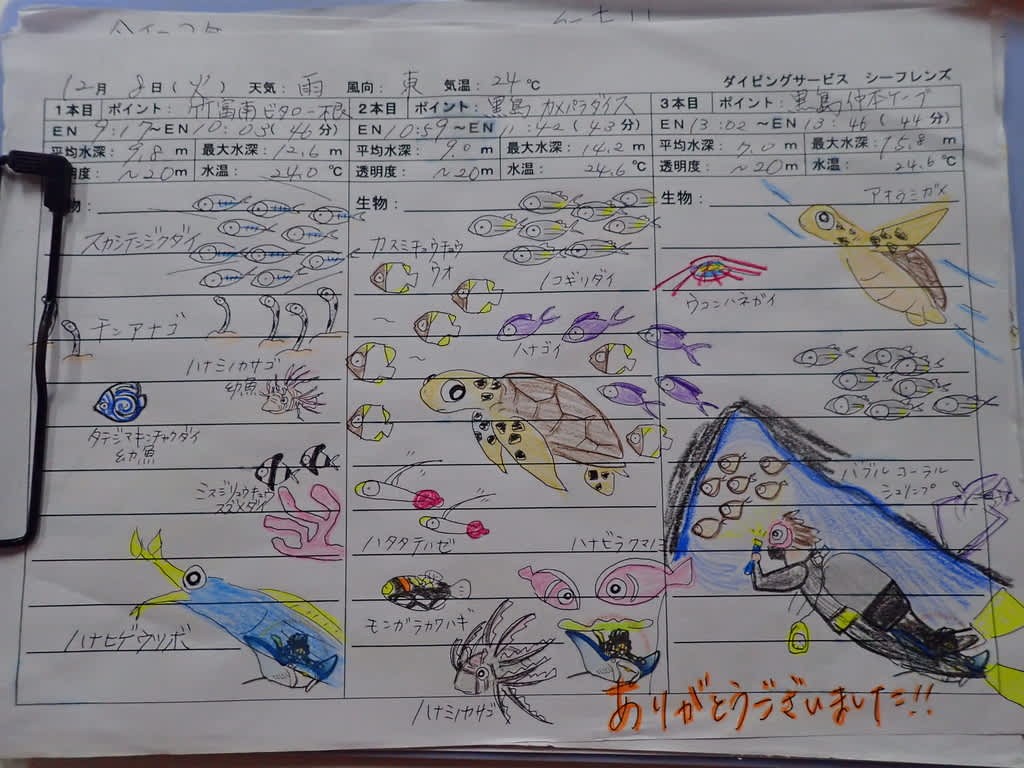 12月 8日(火) 天気: 雨 風向: 東 気温: 24℃ ダイビングサービス シーフレンズ
1本目 ポイント: 竹富南ビタロー根
EN 9:17~EN10:03(46分)
平均水深: 9.8m 最大水深: 12.6m
明度: ~20m 水温: 24.0℃
物:
スカシテンジクダイ
チンアナゴ
ハナミノカサゴ
幼魚
タテジマキンチャクダイ
幼魚
ミスジリュウキュウ
スズメダイ
ハナヒゲウツボ
2本目 ポイント: 黒島 カメパラダイス
EN 10:59~EN 11:42(43分)
平均水深: 9.0m 最大水深: 14.2m
透明度: ~20m 水温: 24.6℃
生物:
カスミチョウチョウ
ウオ
ノコギリダイ
ハナゴイ
ハタタテハゼ
ハナビラクマノミ
モンガラカワハギ
ハナミノカサゴ
3本目 ポイント: 黒島仲本ケーブ
EN 13:02~EN 13:46(44分)
平均水深: 7.0m 最大水深: 15.8m
透明度: ~20m 水温: 24.6℃
生物:
アオウミガメ
ウコンハネガイ
バブルコーラル
シュリンプ
ありがとうございました!!